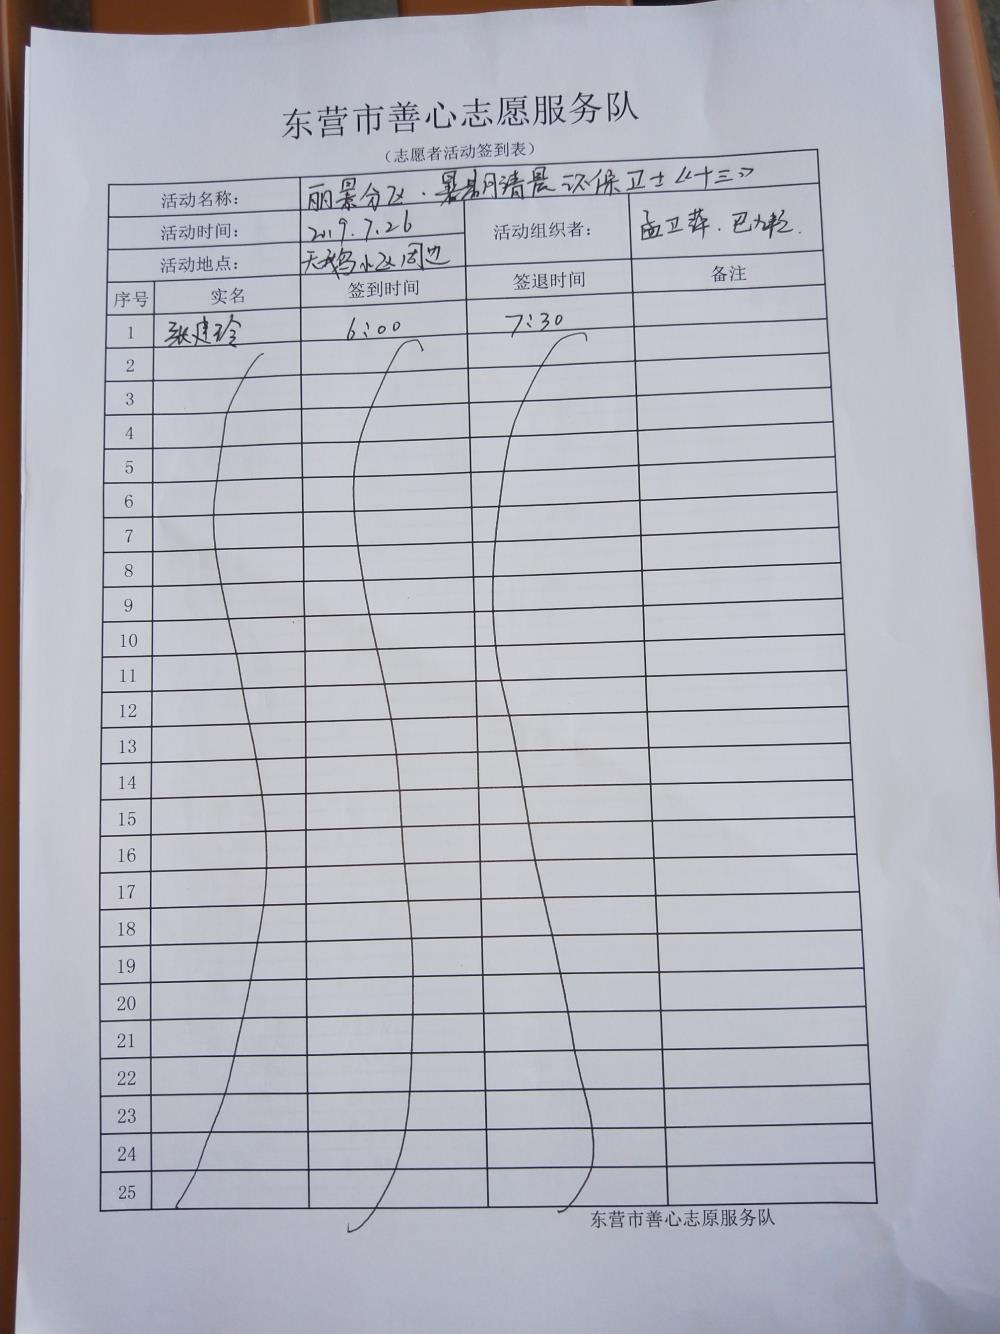 东营市善心志愿服务队
(志愿者活动签到表)
活动名称： 丽景分区.暑期清晨环保卫士《十三》
活动时间： 2019.7.26 活动组织者： 孟卫萍.巴
活动地点： 天鹅小区周边
序号 实名 签到时间 签退时间 备注
1 张建玲 6:00 7:30
2
3
4
5
6
7
8
9
10
11
12
13
14
15
16
17
18
19
20
21
22
23
24
25
东营市善心志原服务队